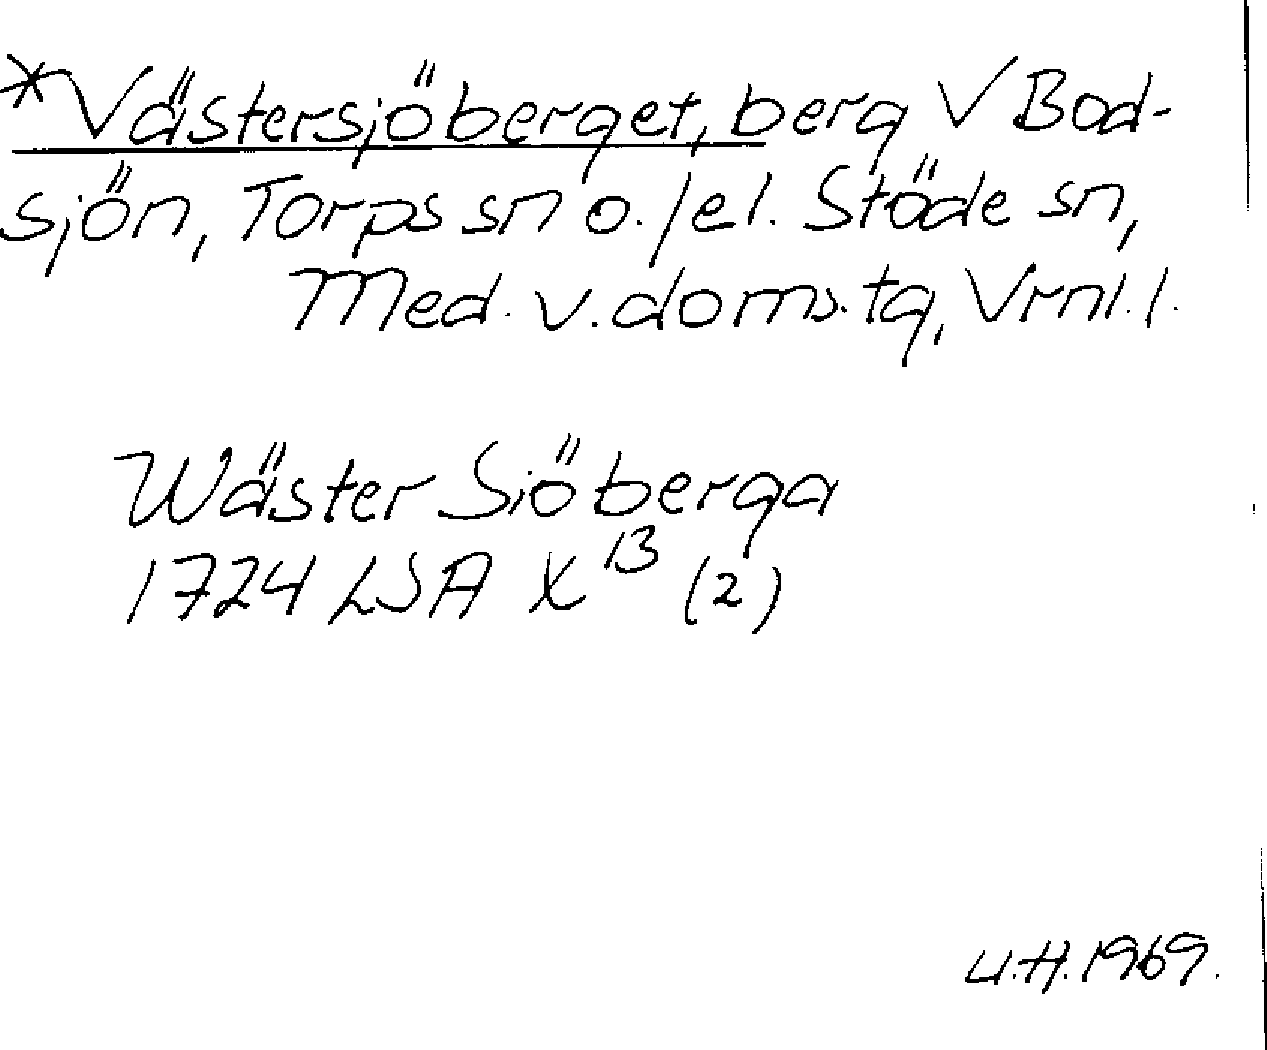 *Västersjöberget, berg V Bod-
sjön, Torps sn o./el. Stöde sn,
Med. v. doms. tg, Vrnl. l.
Wäster Siöberga
1724 LSA X 13 (2)
U.H. 1969.